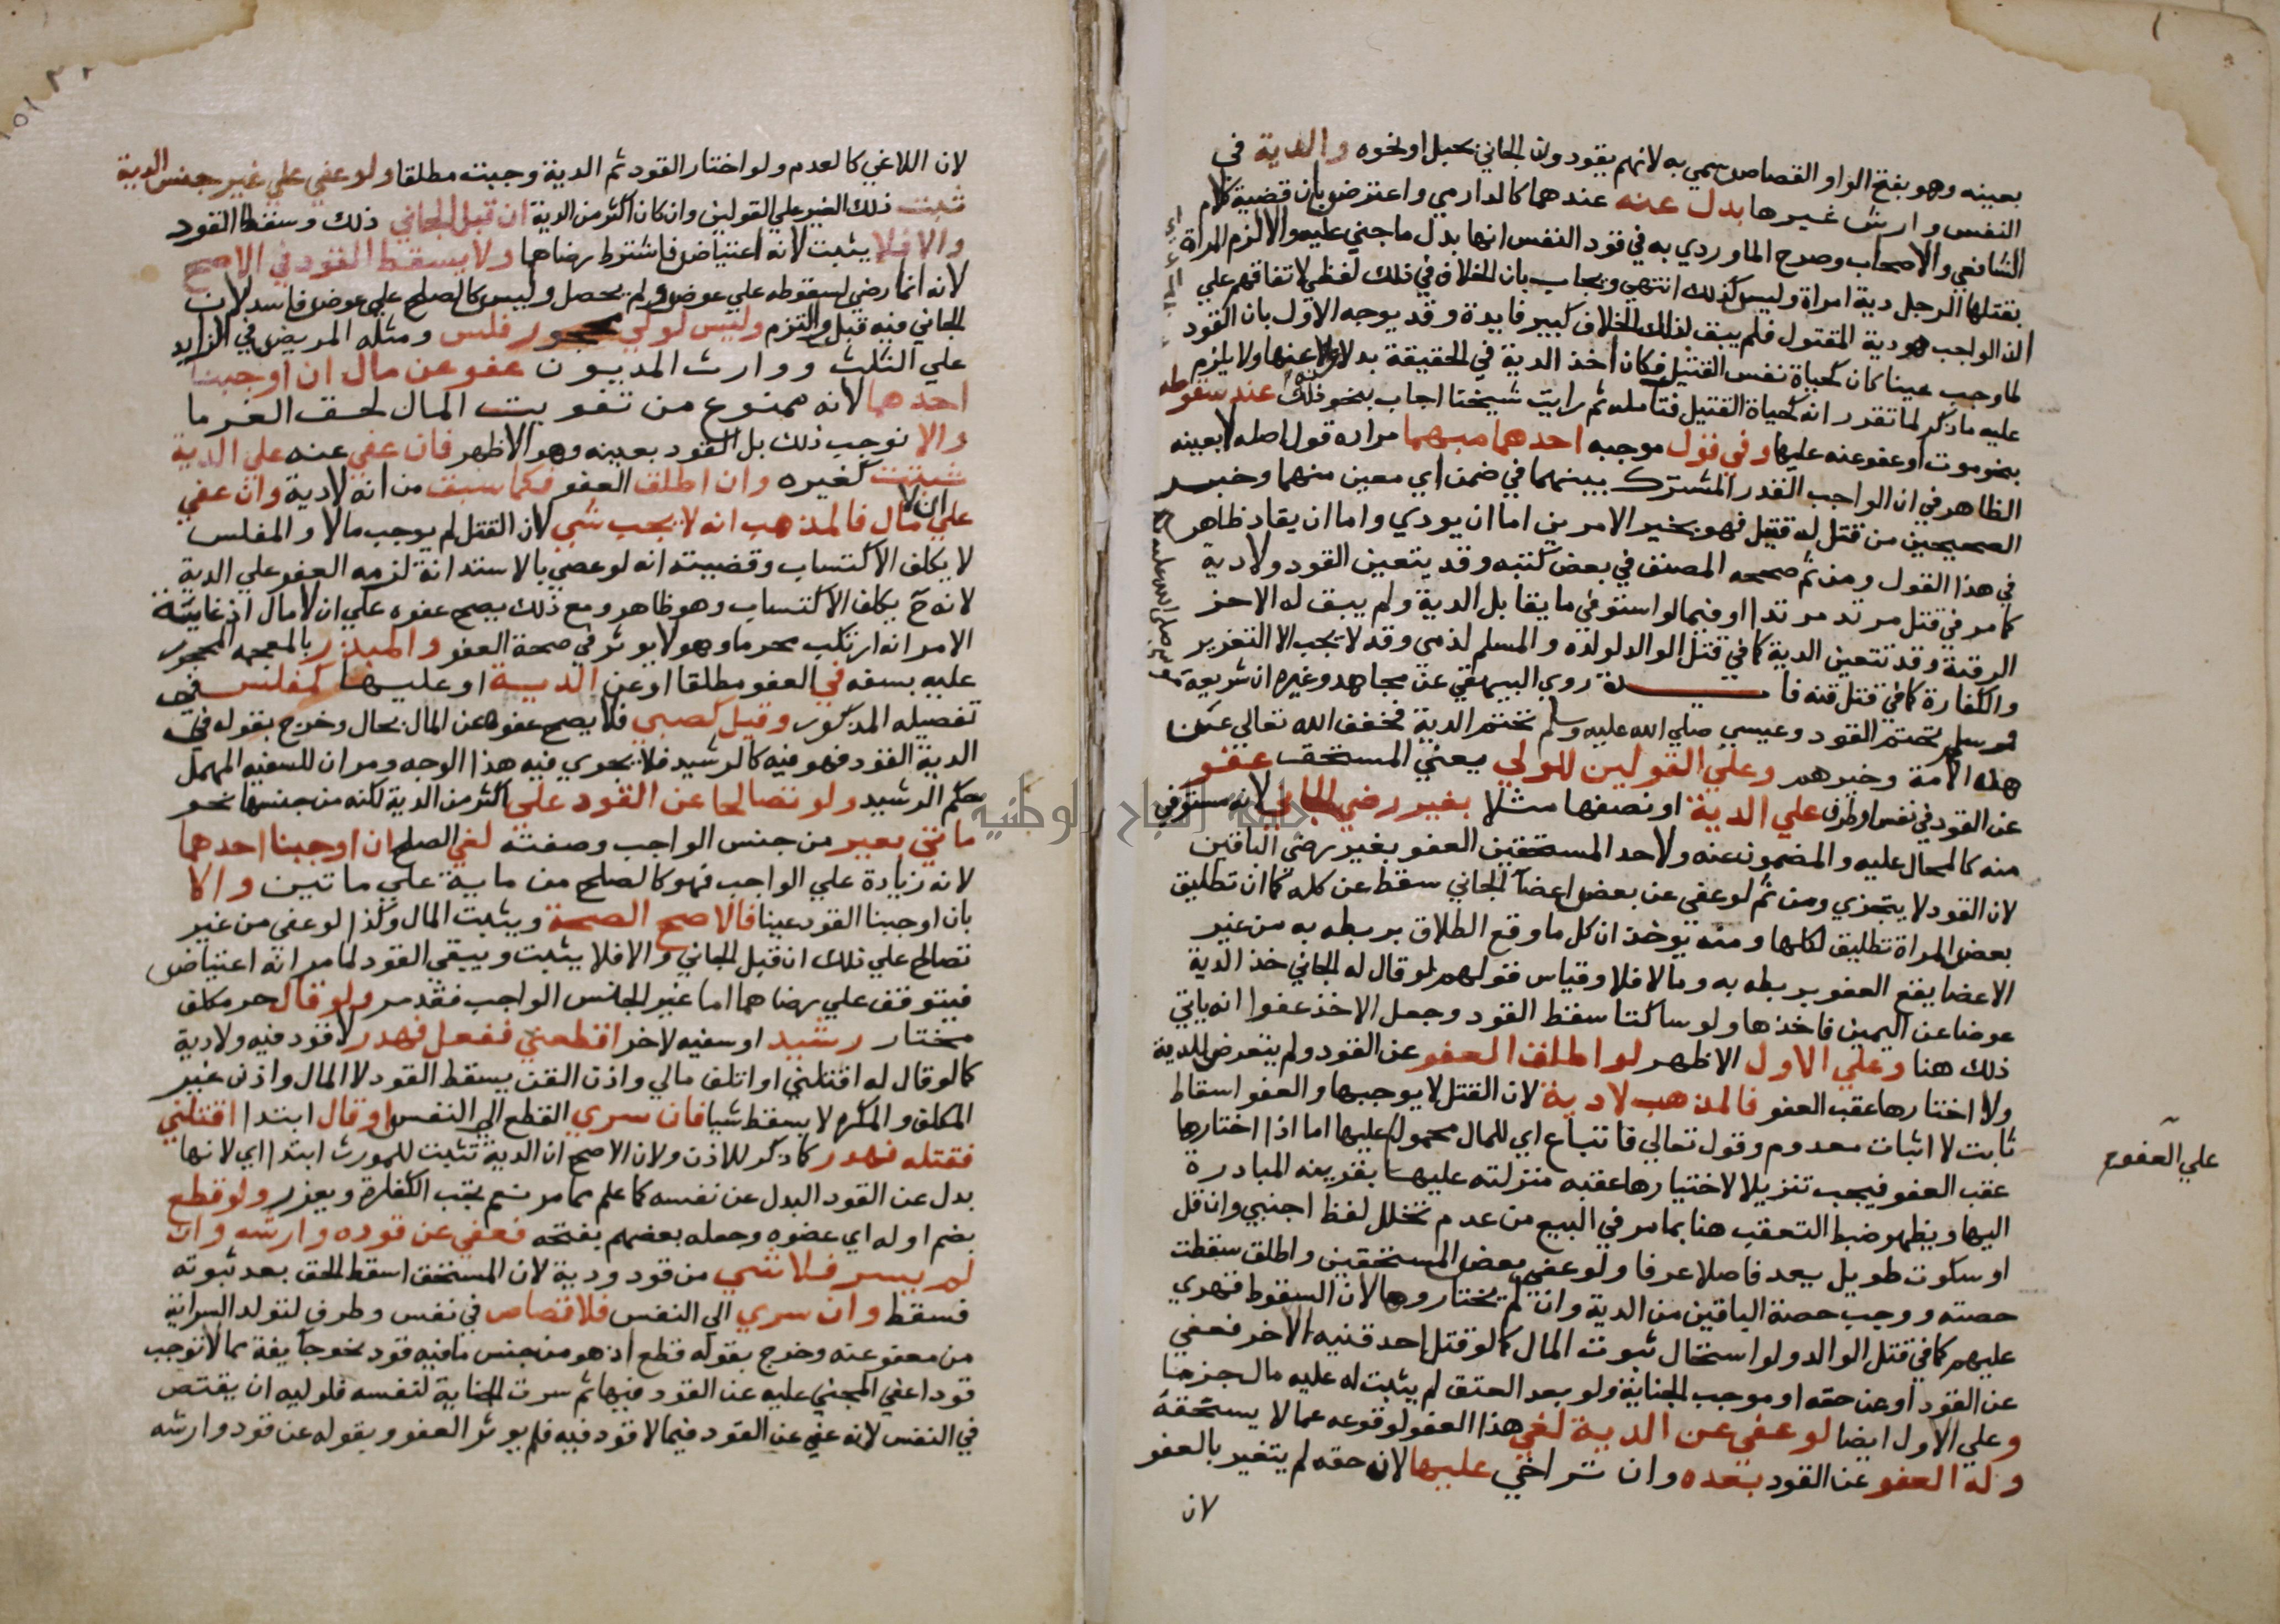 بعينه وهو بفتح الواو القصاص سمي به لانهم يقودون الجاني بحبل او نحوه والدية في
النفس وارش غيرها بدل عنه عندهما كالدارمي واعترض بان قضية كلام
الشافعي والاصحاب وصرح الماوردي به في قود النفس انها بدل ما جني عليه والا لزم المراة
بقتلها الرجل دية امراة وليس كذلك انتهي ويجاب بان الخلاف في ذلك لفظي لاتفاقهم علي
ان الواجب هو دية المقتول فلم يبق لذلك الخلاف كبير فايدة وقد يوجه الاول بان القود
لما وجب عينا كان كحياة نفس القتيل فكان اخذ الدية في الحقيقة بدلا عنها ولا يلزم
عليه ما ذكر لما تقرر انه كحياة القتيل فتامله ثم رايت شيخنا اجاب بنحو ذلك عند سقوطه
بنحو موت او عفو عنه عليها وفي قول موجبه احدهما مبهما مراده قول اصله لا بعينه
الظاهر في ان الواجب القدر المشترك بينهما في ضمن اي معين منهما وخبر
الصحيحين من قتل له قتيل فهو بخير الامرين اما ان يودي واما ان يقاد ظاهر
في هذا القول ومن ثم صححه المصنف في بعض كتبه وقد يتعين القود ولا دية
كما مر في قتل مرتد مرتدا او فيما لو استوفي ما يقابل الدية ولم يبق له الا حز
الرقبة وقد تتعين الدية كما في قتل الوالد لولده والمسلم لذمي وقد لا يجب الا التعزير
والكفارة كما في قتل قنه فايـــدة روي البيهقي عن مجاهد وغيره ان شريعة
موسي تحتم القود وعيسي صلي الله عليه وسلم تحتم الدية فخفف الله تعالي عن
هذه الامة وخيرهم وعلي القولين للولي يعني المستحق عفو
عن القود في نفس او طرف علي الدية او نصفها مثلا بغير رضي الجاني لانه مستوفي
منه كالمحال عليه والمضمون عنه ولاحد المستحقين العفو بغير رضي الباقين
لان القود لا يتجزي ومن ثم لو عفي عن بعض اعضآ الجاني سقط عن كله كما ان تطليق
بعض المراة تطليق لكلها ومنه يوخذ ان كل ما وقع الطلاق بربطه به من غير
الاعضا يقع العفو بربطه به وما لا فلا وقياس قولهم لو قال له الجاني خذ الدية
عوضا عن اليمين فاخذها ولو ساكتا سقط القود وجعل الاخذ عفوا انه ياتي
ذلك هنا وعلي الاول الاظهر لو اطلق العفو عن القود ولم يتعرض للدية
ولا اختارها عقب العفو فالمذهب لا دية لان القتل لا يوجبها والعفو اسقاط
ثابت لا اثبات معدوم وقول تعالي فاتباع اي للمال محمول عليها اما اذا اختارها
علي العفو
عقب العفو فيجب تنزيلا لاختيارها عقبه منزلته عليها بقرينه المبادرة
اليها ويظهر ضبط التعقب هنا بما مر في البيع من عدم تخلل لفظ اجنبي وان قل
او سكوت طويل يعد فاصلا عرفا ولو عفي بعض المستحقين واطلق سقطت
حصته ووجب حصة الباقين من الدية وان لم يختاروها لان السقوط قهري
عليهم كما في قتل الوالد ولو استحال ثبوت المال كما لو قتل احد قنيه الاخر فعفي
عن القود او عن حقه او موجب الجناية ولو بعد العتق لم يثبت له عليه مال جزما
وعلي الاول ايضا لو عفي عن الدية لغي هذا العفو لوقوعه عما لا يستحقه
وله العفو عن القود بعده وان تراخي عليها لان حقه لم يتغير بالعفو
لان
لان اللاغي كالعدم ولو اختار القود ثم الدية وجبت مطلقا ولو عفي علي غير جنس الدية
ثبت ذلك الغير علي القولين وان كان اكثر من الدية ان قبل الجاني ذلك وسقط القود
والا فلا يثبت لانه اعتياض فاشترط رضاهما ولا يسقط القود في الاصح
لانه انما رضي لسقوطه علي عوض ولم يحصل وليس كالصلح علي عوض فاسد لان
الجاني فيه قبل والتزم وليس لولي محجور فلس ومثله المريض في الزايد
علي الثلث ووارث المديون عفو عن مال ان اوجبنا
احدهما لانه ممنوع من تفويت المال لحق الغرما
والا نوجب ذلك بل القود بعينه وهو الاظهر فان عفي عنه علي الدية
ثبتت كغيره وان اطلق العفو فكما سبق من انه لا دية وان عفي
علي ان لا مال فالمذهب انه لا يجب شي لان القتل لم يوجب مالا والمفلس
لا يكلف الاكتساب وقضيته انه لو عصي بالاستدانة لزمه العفو علي الدية
لانه ح يكلف الاكتساب وهو ظاهر ومع ذلك يصح عفوه علي ان لا مال اذ غاية
الامر انه ارتكب محرما وهو لا يوثر في صحة العفو والمبذر بالمعجمه المحجور
عليه بسفه في العفو مطلقا او عن الدية او عليها كمفلس في
تفصيله المذكور وقيل كصبي فلا يصح عفوه عن المال بحال وخرج بقوله في
الدية القود فهو فيه كالرشيد فلا يجري فيه هذا الوجه ومر ان للسفيه المهمل
حكم الرشيد ولو تصالحا عن القود علي اكثر من الدية لكنه من جنسها نحو
مائتي بعير من جنس الواجب وصفته لغي الصلح ان اوجبنا احدهما
لانه زيادة علي الواجب فهو كالصلح من ماية علي ماتين والا
بان اوجبنا القود عينا فالاصح الصحة ويثبت المال وكذا لو عفي من غير
تصالح علي ذلك ان قبل الجاني والا فلا يثبت ويبقي القود لما مر انه اعتياض
فيتوقف علي رضاهما اما غير الجنس الواجب فقد مر ولو قال حر مكلف
مختار رشيد او سفيه لاخر اقطعني ففعل فهدر لا قود فيه ولا دية
كما لو قال له اقتلني او اتلف مالي واذن القن يسقط القود لا المال واذن غير
المكلف والمكره لا يسقط شيا فان سري القطع الي النفس او قال ابتدا اقتلني
فقتله فهدر كما ذكر للاذن ولان الاصح ان الدية تثبت للمورث ابتدا اي لانها
بدل عن القود البدل عن نفسه كما علم مما مر نعم تجب الكفارة ويعزر ولو قطع
بضم اوله اي عضوه وجعله بعضهم بفتحه فعفي عن قوده وارشه وان
لم يسر فلا شي من قود ودية لان المستحق اسقط الحق بعد ثبوته
فسقط وان سري الي النفس فلا قصاص في نفس وطرف لتولد السراية
من معفو عنه وخرج بقوله قطع اذ هو من جنس ما فيه قود نحو جايفة مما لا توجب
قودا عفي المجني عليه عن القود فيها ثم سرت الجناية لنفسه فلوليه ان يقتص
في النفس لانه عفي عن القود فيما لا قود فيه فلم يوثر العفو وبقوله عن قود وارشه